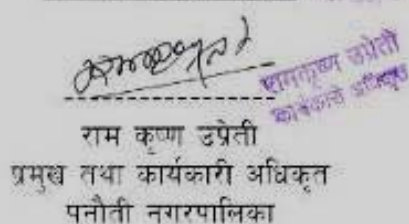 रामकृष्ण उप्रेती
कार्यकारी अधिकृत
राम कृष्ण उप्रेती
प्रमुख तथा कार्यकारी अधिकृत
पनौती नगरपालिका